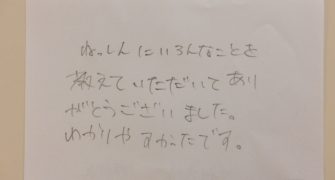 ねっしんにいろんなことを
教えていただいてあり
がとうございました。
わかりやすかったです。